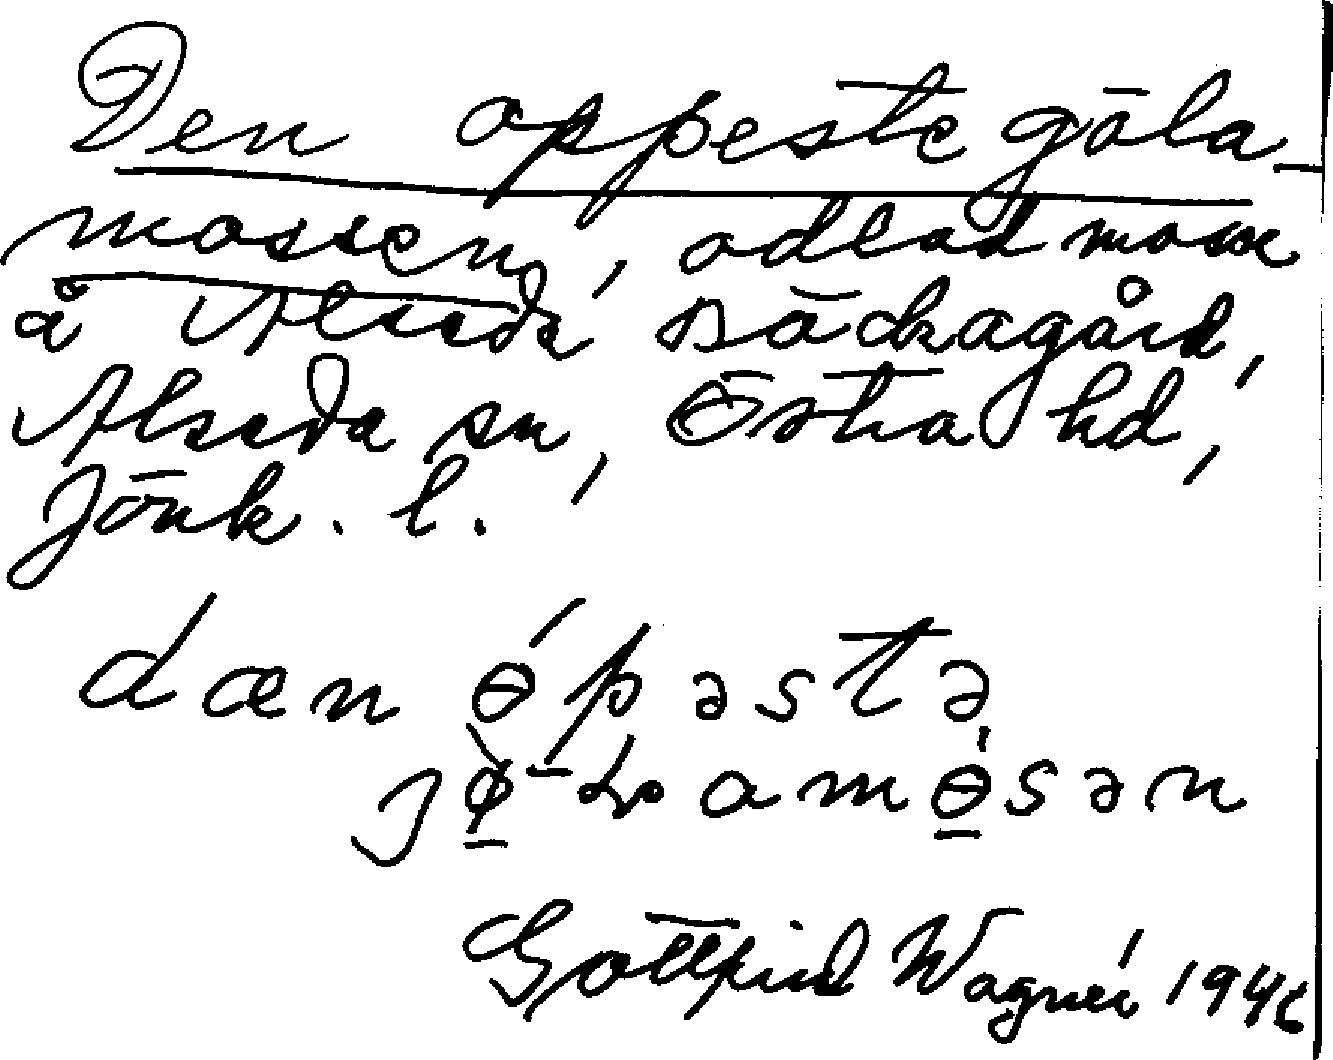 Den oppeste göla-
mossen, odlad mosse
å Alseda Säckagård,
Alseda sn, Östra hd,
Jönk. l.
dæn ɵ́pəstə
amɵ́sən
Gottfrid Wagnér 1946